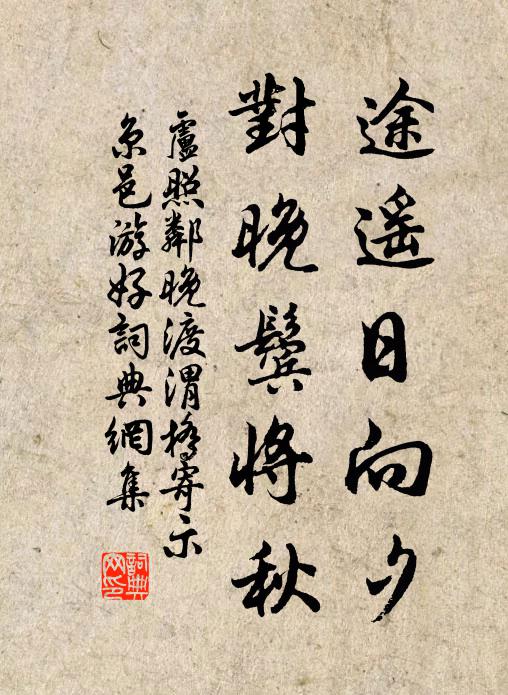 途遥日向夕
對晚鬢將秋
盧照鄰晚渡渭橋寄示
京邑游好詞典網集
詞典
网印